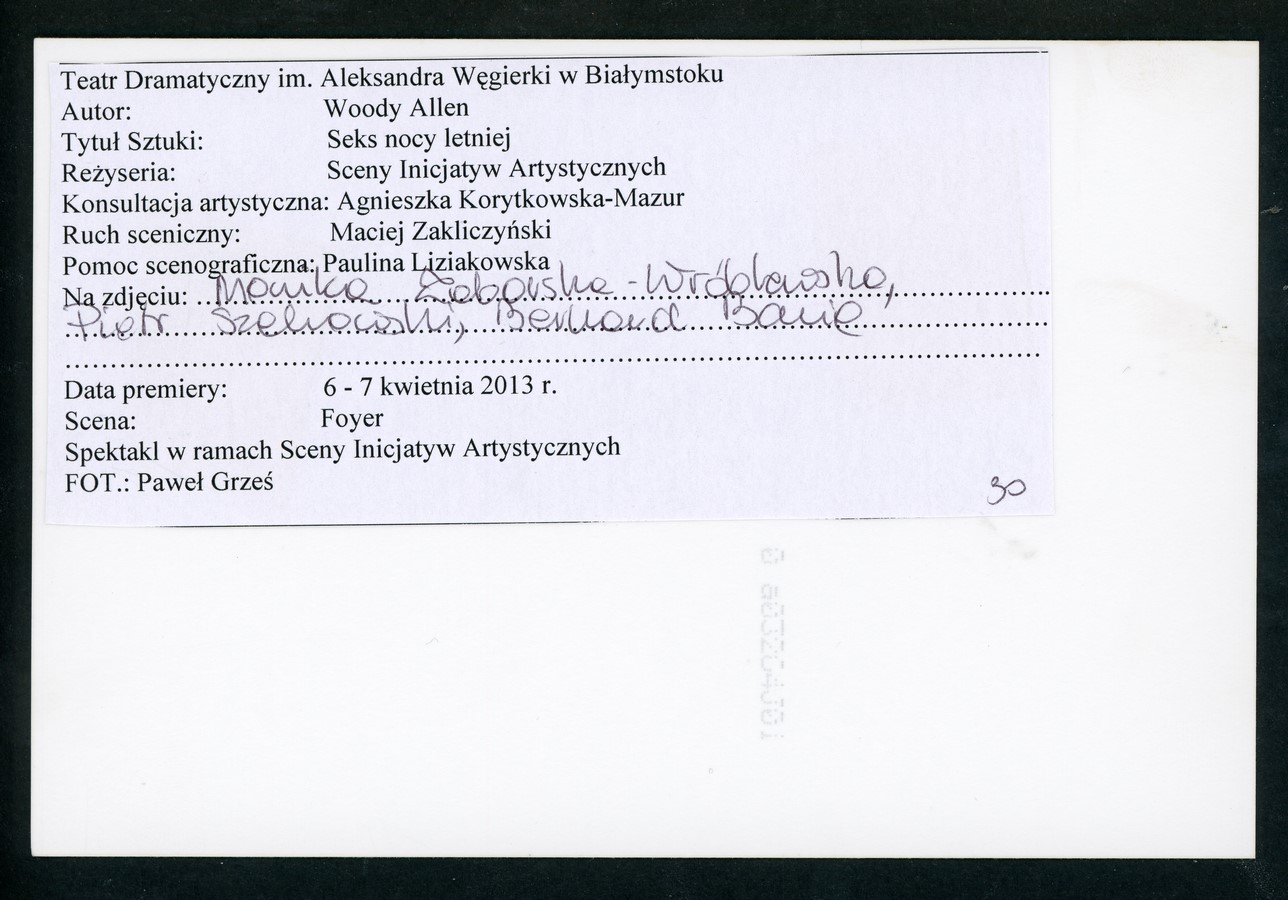 Teatr Dramatyczny im. Aleksandra Węgierki w Białymstoku
Autor: Woody Allen
Tytuł Sztuki: Seks nocy letniej
Reżyseria: Sceny Inicjatyw Artystycznych
Konsultacja artystyczna: Agnieszka Korytkowska-Mazur
Ruch sceniczny: Maciej Zakliczyński
Pomoc scenograficzna: Paulina Liziakowska
Na zdjęciu: Monika Zaborska-Wróblewska,
Piotr Szekowski, Bernard Bania
Data premiery: 6 - 7 kwietnia 2013 r.
Scena: Foyer
Spektakl w ramach Sceny Inicjatyw Artystycznych
FOT.: Paweł Grześ
30